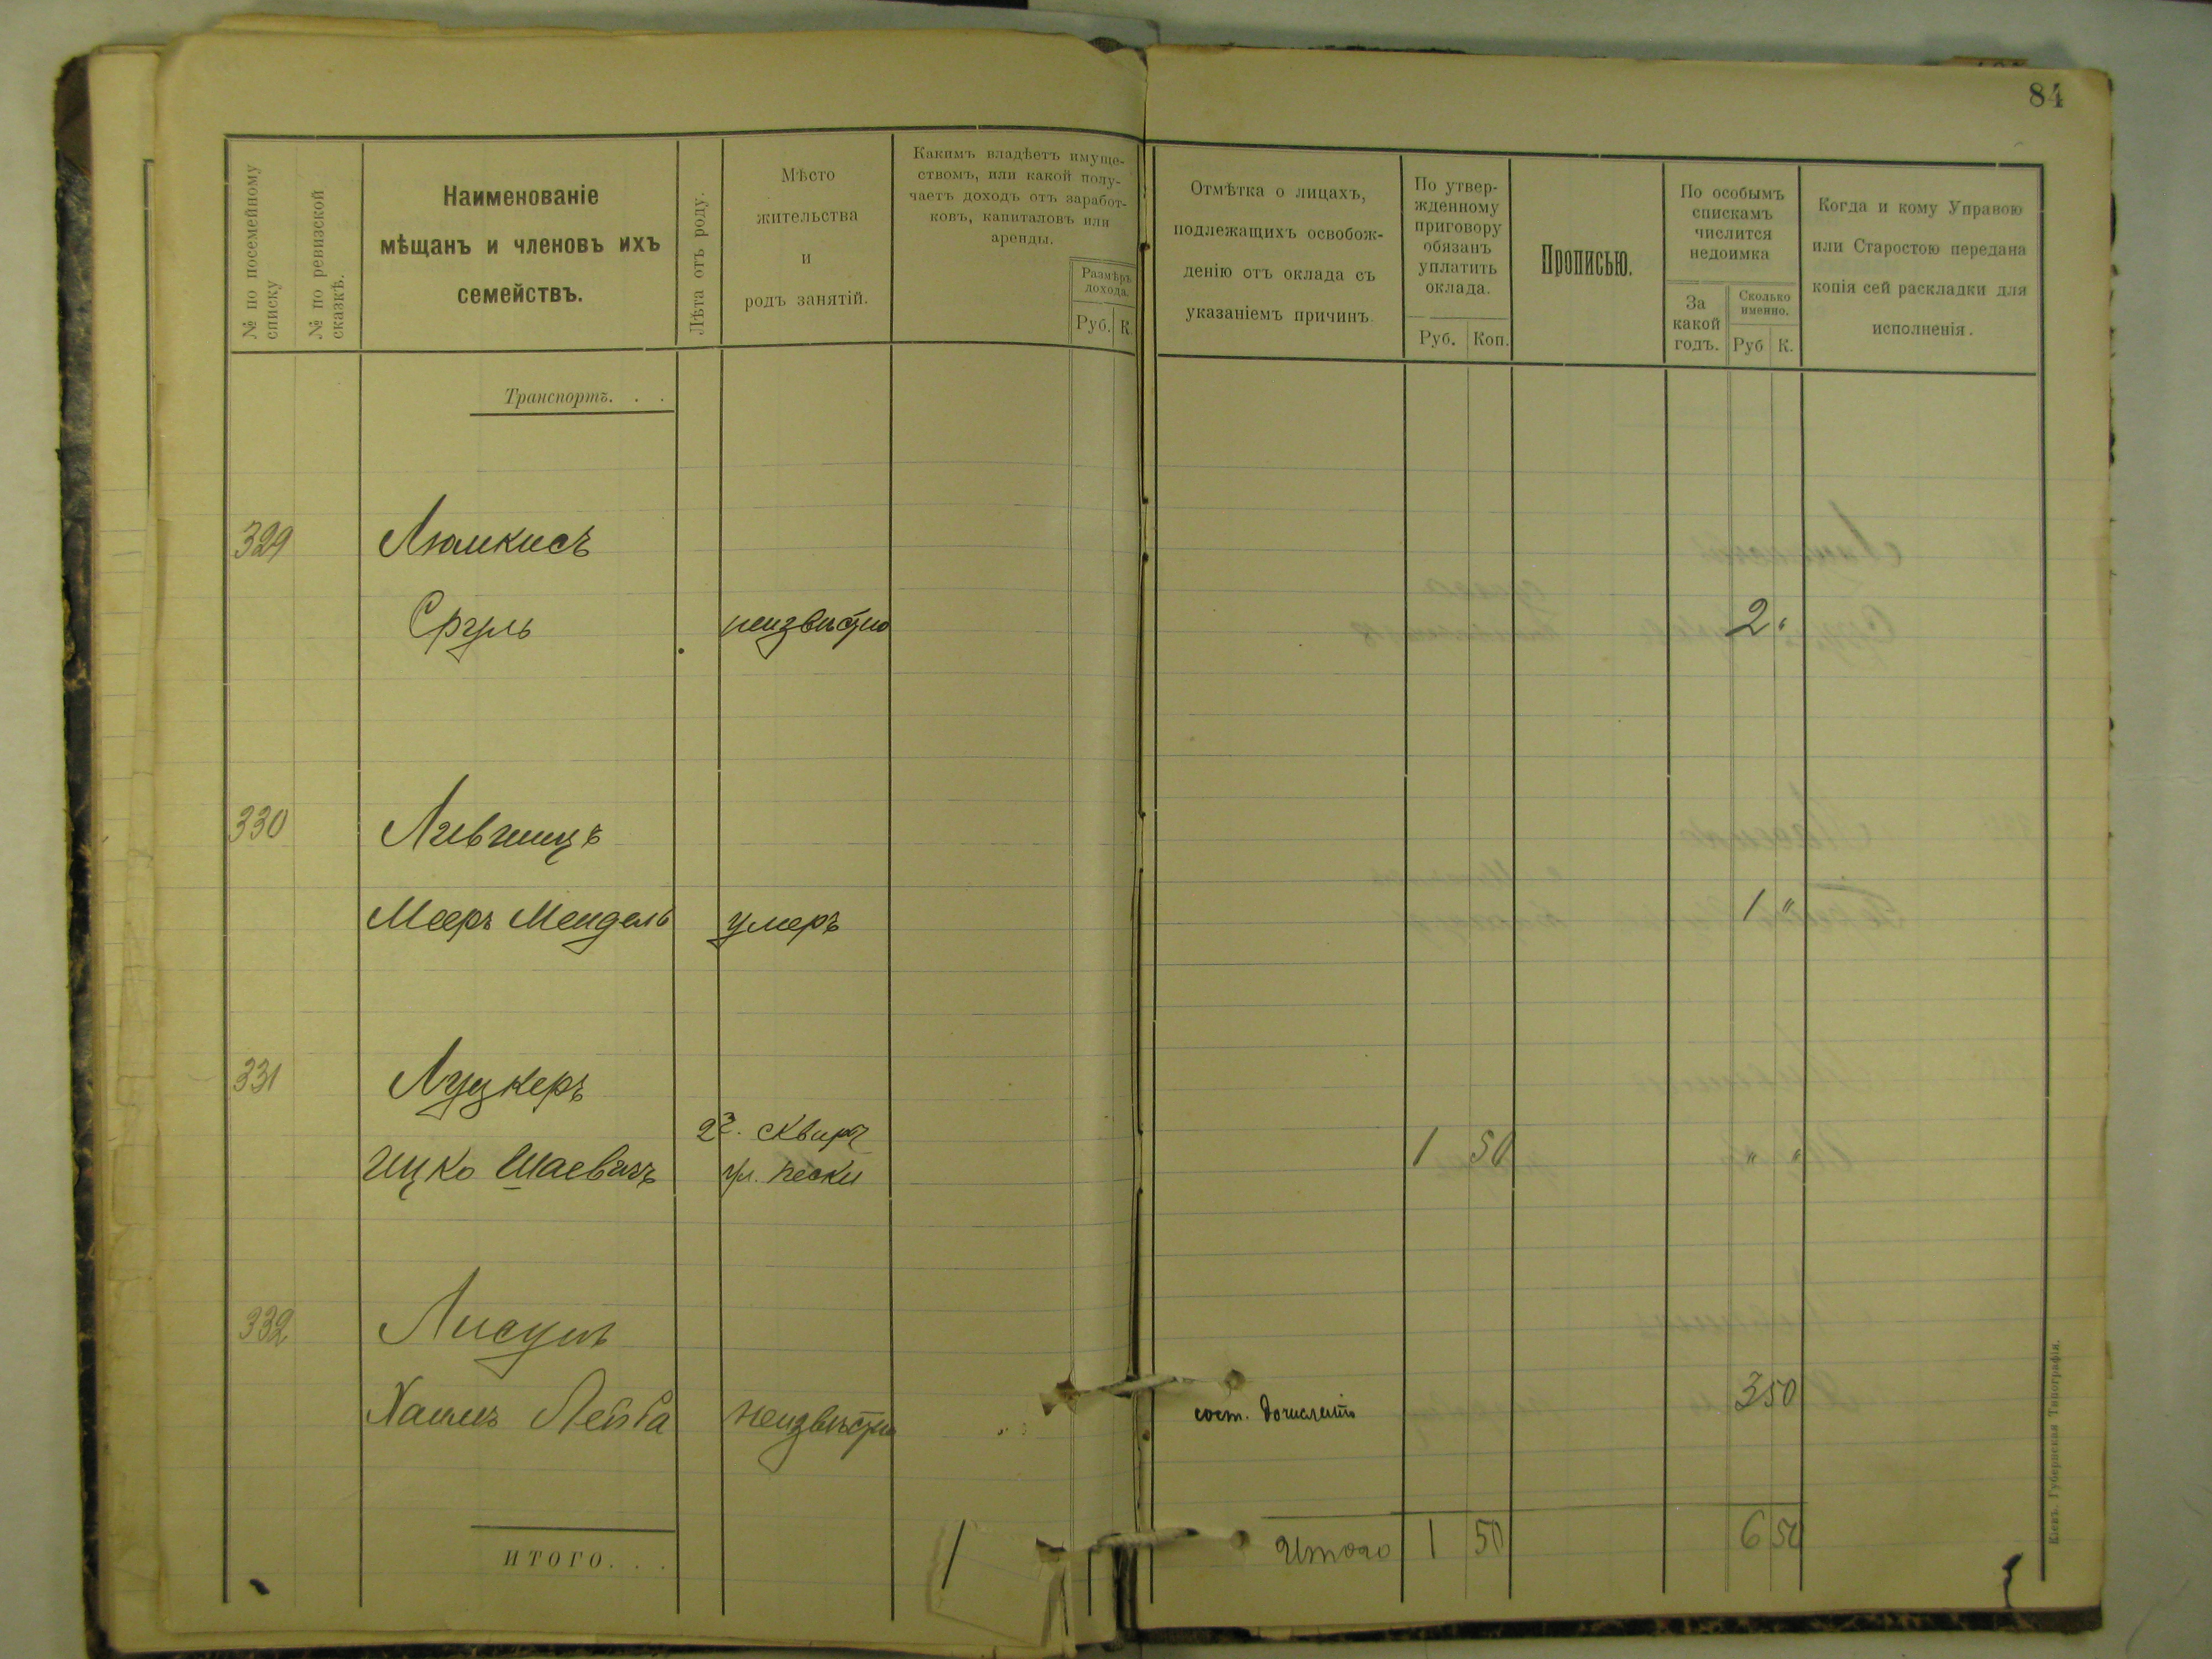 84
№ по посемейному списку
№ по ревизской сказкѣ.
Наименованіе
мѣщанъ и членовъ ихъ
семействъ.
Лѣта отъ роду.
Мѣсто
жительства
и
родъ занятій.
Какимъ владѣетъ имуще-
ствомъ, или какой полу-
чаетъ доходъ отъ заработ-
ковъ, капиталовъ или
аренды.
Размѣръ
дохода.
Руб. К.
Отмѣтка о лицахъ,
подлежащихъ освобож-
денію отъ оклада съ
указаніемъ причинъ.
По утвер-
жденному
приговору
обязанъ
уплатить
оклада.
Руб. Коп.
Прописью.
По особымъ
спискамъ
числится
недоимка
За
какой
годъ.
Сколько
именно.
Руб К.
Когда и кому Управою
или Старостою передана
копія сей раскладки для
исполненія.
Транспортъ. . .
329 Люмкисъ
Сруль неизвѣстно 2 "
330 Лившицъ
Мееръ Мендель умеръ 1 "
331 Луцкеръ
Ицко Шаевичъ ул. пески 1 50 " "
332
Хаимъ Лейба неизвѣстно сост. 3 50
ИТОГО. . .
Итого 1 50 6 50
Кіевъ. Губернская Типографія.